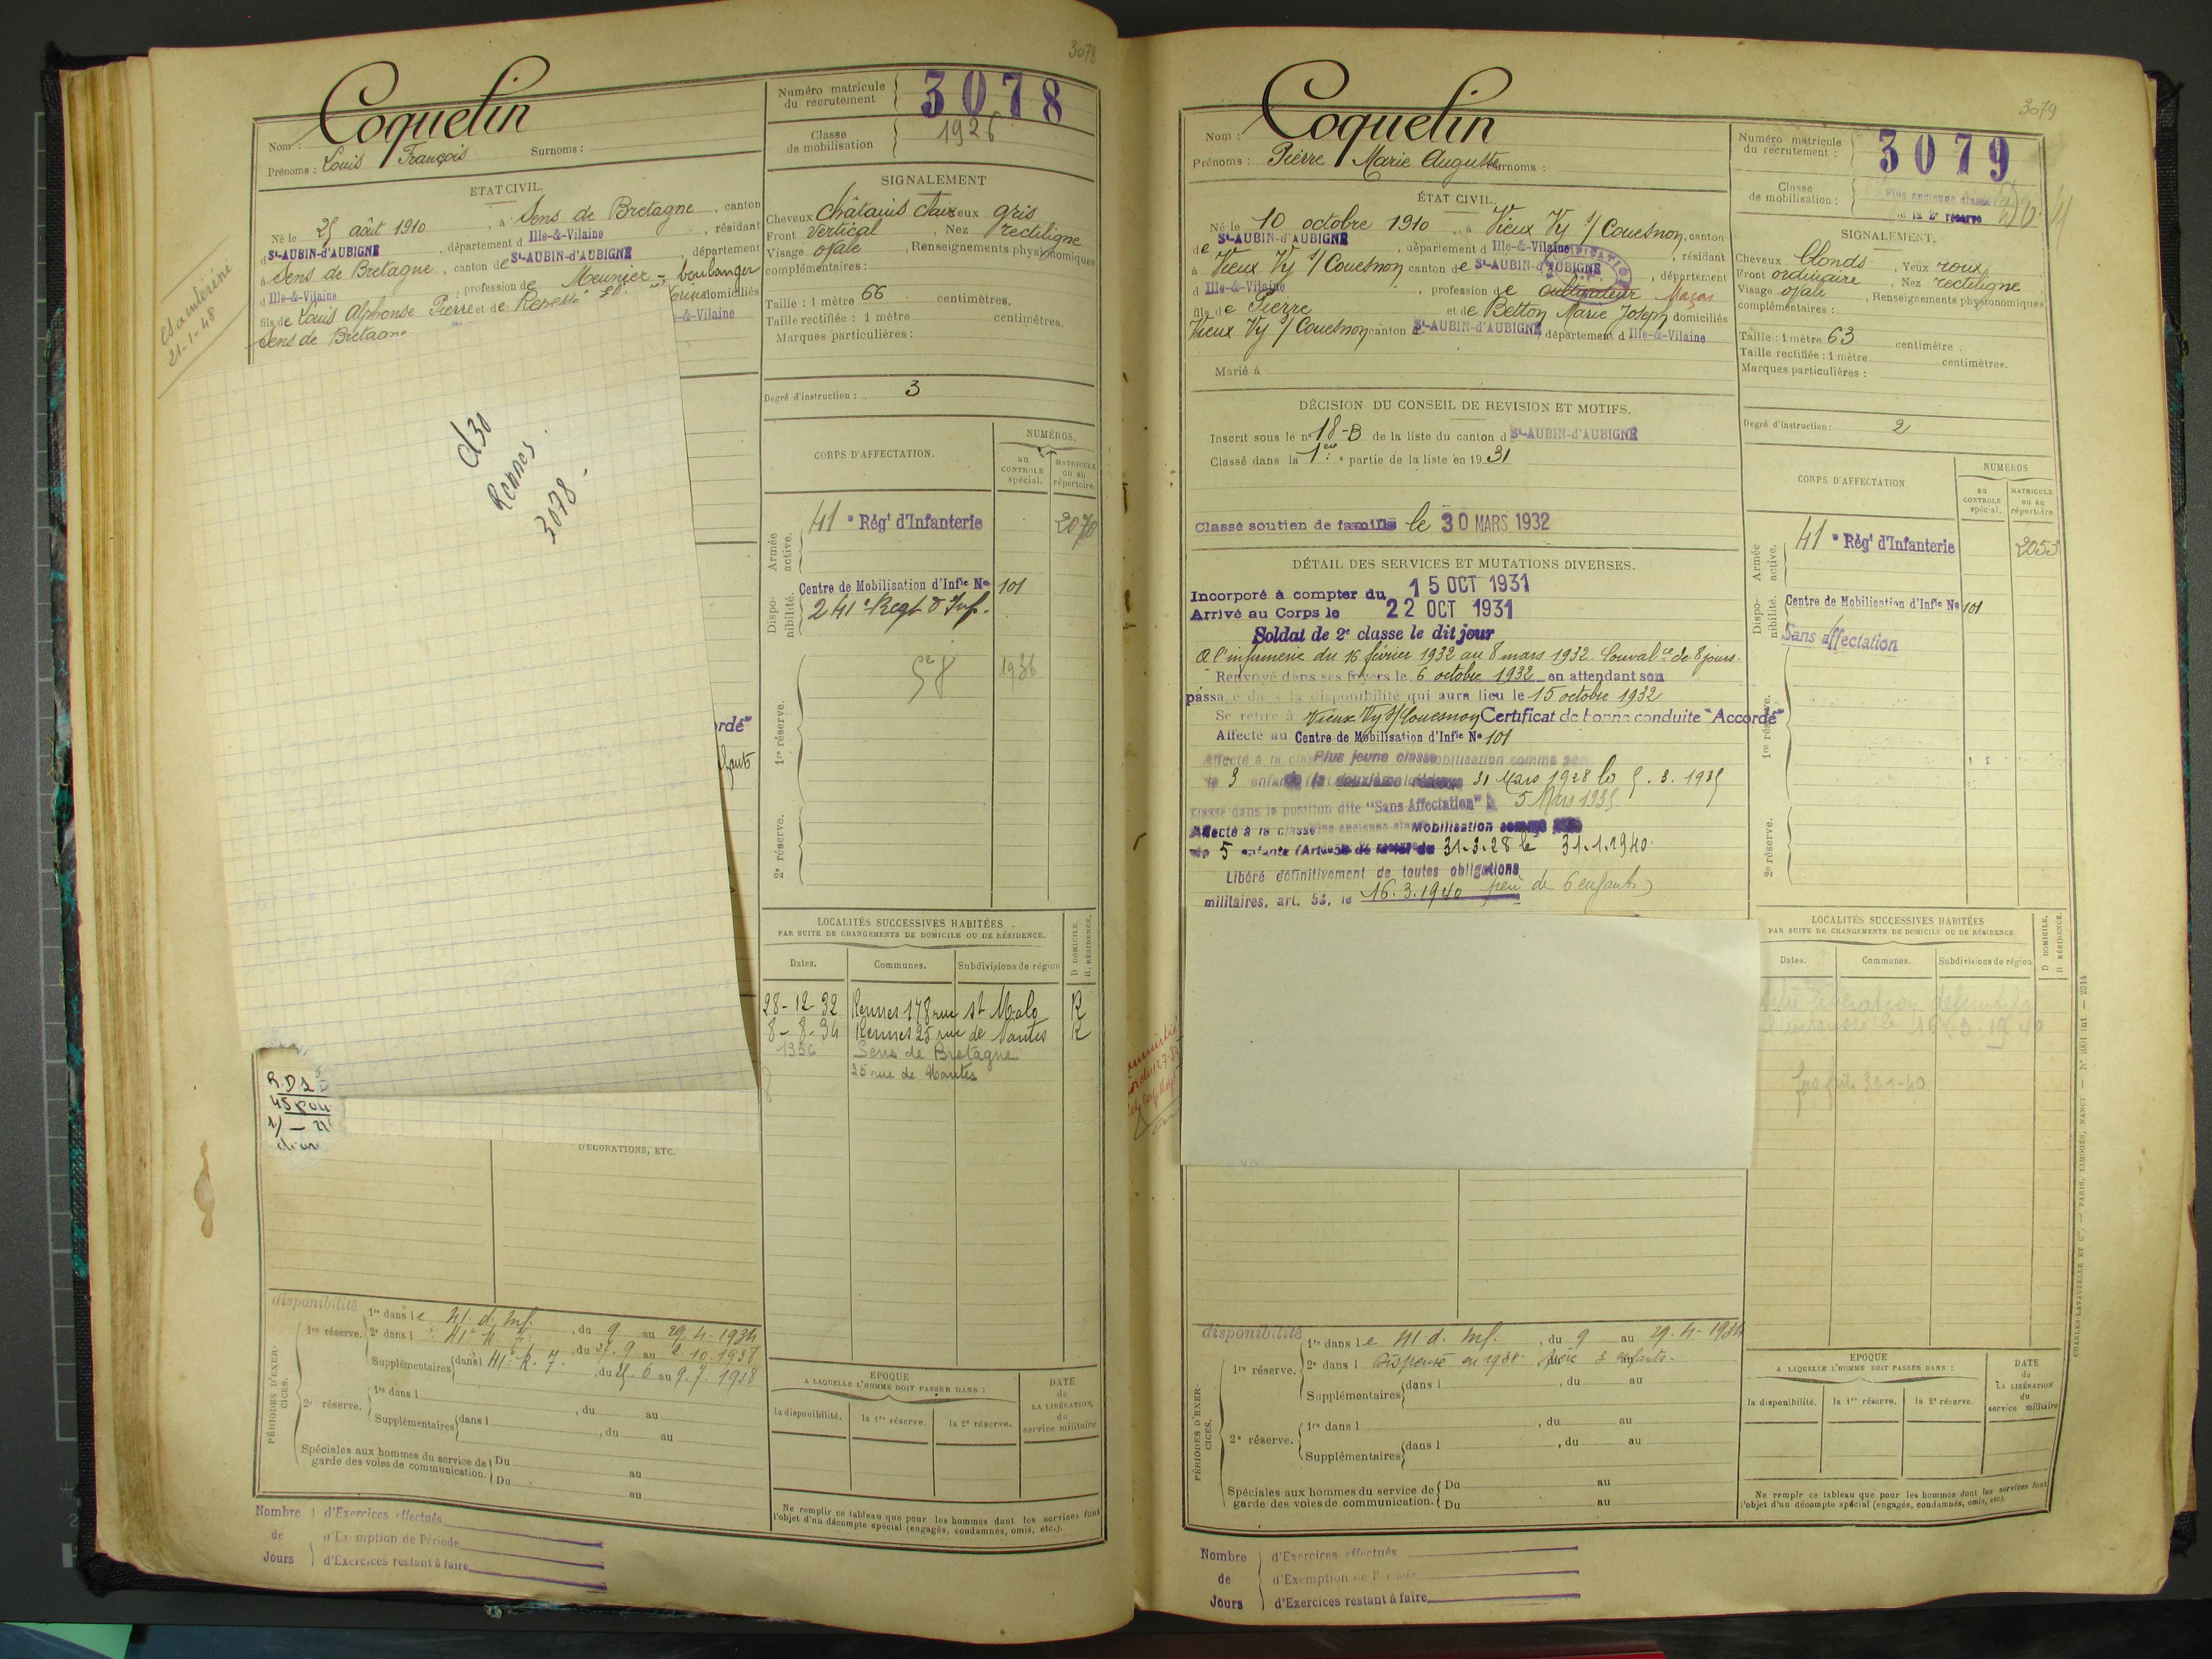 3078
Nom : Coquelin
Prénoms : Louis François Surnoms :
ETAT CIVIL.
Né le 25 août 1910, à Sens de Bretagne, canton
d St-AUBIN-d'AUBIGNÉ, département d Ille-&-Vilaine, résidant
à Sens de Bretagne, canton de St-AUBIN-d'AUBIGNÉ, département
d Ille-&-Vilaine, profession de Meunier - boulanger
fils de Louis Alphonse Pierre et de domiciliés
Sens de Bretagne
e-&-Vilaine
21-1-48
d30
Rennes
3078 -
ordé"
Numéro matricule du recrutement 3078
Classe de mobilisation 1926
SIGNALEMENT
Cheveux châtains clair eux gris
Front vertical, Nez rectiligne
Visage ovale, Renseignements physionomiques
complémentaires :
Taille : 1 mètre 66 centimètres.
Taille rectifiée : 1 mètre centimètres.
Marques particulières :
Degré d'instruction : 3
CORPS D'AFFECTATION.
NUMÉROS.
au CONTROLE spécial.
MATRICULE ou au répertoire.
Armée active.
41e Régt d'Infanterie 2070
Dispo-nibilité.
Centre de Mobilisation d'Infie No 101
241e Regt d'Inf.
1re réserve.
1936
2e réserve.
LOCALITÉS SUCCESSIVES HABITÉES
PAR SUITE DE CHANGEMENTS DE DOMICILE OU DE RÉSIDENCE.
D DOMICILE.
R. RÉSIDENCE.
Dates. Communes. Subdivisions de région
28-12-32 Rennes 178 rue St Malo R
8-8-34 Rennes 25 rue de Nantes R
1936 Sens de Bretagne
25 rue de Nantes
DÉCORATIONS, ETC.
disponibilité
PÉRIODES D'EXER-CICES.
1re réserve.
1re dans le 41 d. Inf., du 9 au 29.4.1934
2e dans l 41e R. I., du 27.9 au 2.10.1938
Supplémentaires dans l 41e R. I., du 25.6 au 9.7.1938
2e réserve.
1re dans l , du au
Supplémentaires dans l , du au
Spéciales aux hommes du service de garde des voies de communication.
Du au
Du au
EPOQUE
A LAQUELLE L'HOMME DOIT PASSER DANS :
la disponibilité. la 1re réserve. la 2e réserve.
DATE de LA LIBÉRATION du service militaire
Ne remplir ce tableau que pour les hommes dont les services font
l'objet d'un décompte spécial (engagés, condamnés, omis, etc.).
Nombre de Jours
d'Exercices effectués
d'Exemption de Période
d'Exercices restant à faire
3079
Nom : Coquelin
Prénoms : Pierre Marie Auguste Surnoms :
ÉTAT CIVIL.
Né le 10 octobre 1910, à Vieux Vy s/ Couesnon, canton
de St-AUBIN-d'AUBIGNÉ, département d Ille-&-Vilaine, résidant
à Vieux Vy s/ Couesnon canton de St-AUBIN-d'AUBIGNÉ, département
d Ille-&-Vilaine, profession de cultivateur Maçon
fils de Pierre et de Betton Marie Joseph domiciliés
Vieux Vy s/ Couesnon canton d St-AUBIN-d'AUBIGNÉ, département d Ille-&-Vilaine
Marié à
DÉCISION DU CONSEIL DE REVISION ET MOTIFS.
Inscrit sous le no 18-B de la liste du canton d St-AUBIN-d'AUBIGNÉ
Classé dans la 1ère partie de la liste en 1931
Classé soutien de famille le 30 MARS 1932
DÉTAIL DES SERVICES ET MUTATIONS DIVERSES.
Incorporé à compter du 15 OCT 1931
Arrivé au Corps le 22 OCT 1931
Soldat de 2e classe le dit jour
A l'infirmerie du 16 février 1932 au 8 mars 1932. Convalce de 8 jours.
Renvoyé dans ses foyers le 6 octobre 1932 en attendant son
passage dans la disponibilité qui aura lieu le 15 octobre 1932
Se retire à Vieux Vy s/ Couesnon Certificat de bonne conduite "Accordé"
Affecté au Centre de Mobilisation d'Infie No 101
Affecté à la classe Plus jeune classe mobilisation comme père
de 3 enfants de la deuxième réserve 31 Mars 1928 le 5.3.1935
Classé dans la position dite "Sans Affectation" 5 Mars 1935
Affecté à la classe plus ancienne classe Mobilisation comme père
de 5 enfants 31.3.28 le 31.1.1940.
Libéré définitivement de toutes obligations
militaires, art. 53, le 16.3.1940 père de 6 enfants
Numéro matricule du recrutement : 3079
Classe de mobilisation : Plus ancienne classe
de la 2e réserve
SIGNALEMENT.
Cheveux blonds, Yeux roux
Front ordinaire, Nez rectiligne
Visage ovale, Renseignements physionomiques
complémentaires :
Taille : 1 mètre 63 centimètre.
Taille rectifiée : 1 mètre centimètres.
Marques particulières :
Degré d'instruction : 2
CORPS D'AFFECTATION
NUMÉROS
au CONTROLE spécial.
MATRICULE ou au répertoire
Armée active.
41e Régt d'Infanterie 2053
Dispo-nibilité.
Centre de Mobilisation d'Infie No 101
Sans affectation
1re réserve.
2e réserve.
LOCALITÉS SUCCESSIVES HABITÉES
PAR SUITE DE CHANGEMENTS DE DOMICILE OU DE RÉSIDENCE.
D DOMICILE.
R RÉSIDENCE.
Dates. Communes. Subdivisions de région
disponibilité
PÉRIODES D'EXER-CICES.
1re réserve.
1re dans le 41 d. Inf., du 9 au 29.4-1934
2e dans l Dispensé en 1938 père 3 enfants - du au
Supplémentaires dans l , du au
2e réserve.
1re dans l , du au
Supplémentaires dans l , du au
Spéciales aux hommes du service de garde des voies de communication.
Du au
Du au
EPOQUE
A LAQUELLE L'HOMME DOIT PASSER DANS :
la disponibilité. la 1re réserve. la 2e réserve.
DATE de LA LIBÉRATION du service militaire
Ne remplir ce tableau que pour les hommes dont les services font
l'objet d'un décompte spécial (engagés, condamnés, omis, etc).
Nombre de Jours
d'Exercices effectués
d'Exemption de Période
d'Exercices restant à faire
CHARLES-LAVAUZELLE ET Cie — PARIS, LIMOGES, NANCY